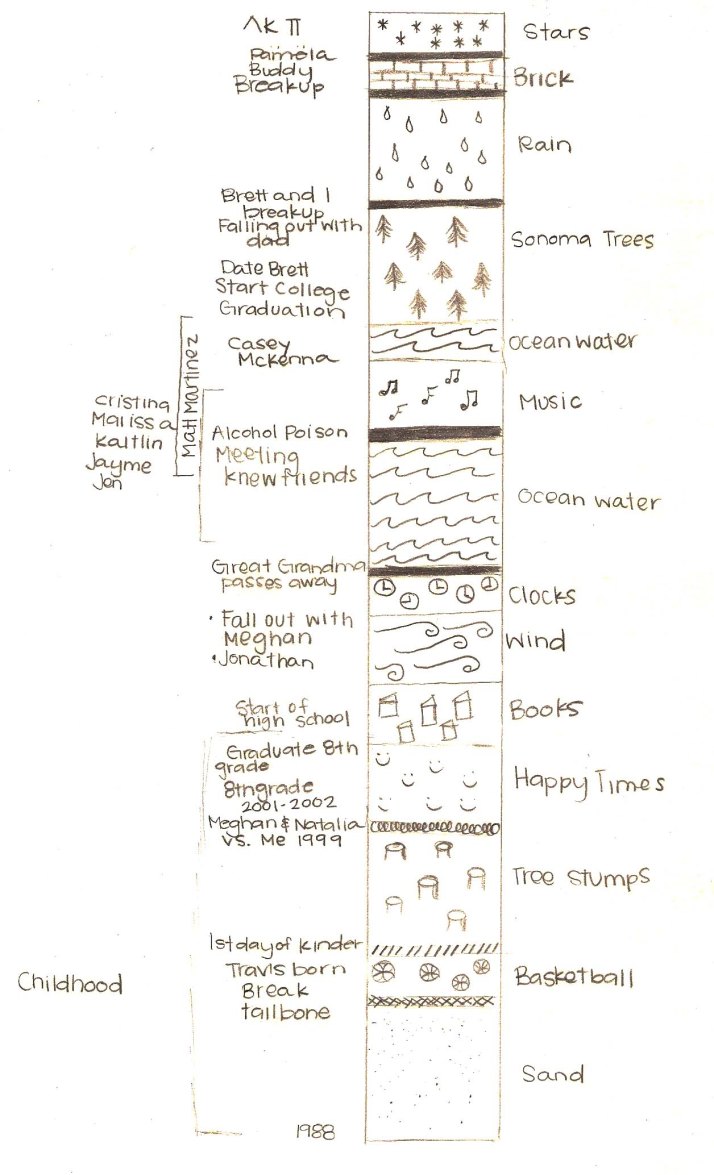 ΛK Π
Stars
Pamela
Buddy
Breakup
Brick
Rain
Brett and I
breakup
Falling out with
dad
Sonoma Trees
Date Brett
Start College
Graduation
Casey
McKenna
Ocean water
Matt Martinez
Music
Cristina
Malissa
Kaitlin
Jayme
Jen
Alcohol Poison
Meeting
knew friends
Ocean water
Great Grandma
passes away
Clocks
· Fall out with
Meghan
· Jonathan
Wind
Start of
high school
Books
Graduate 8th
grade
8th grade
2001-2002
Happy Times
Meghan & Natalia
vs. Me 1999
Tree Stumps
1st day of kinder
Travis born
Break
tailbone
Basketball
Childhood
Sand
1988